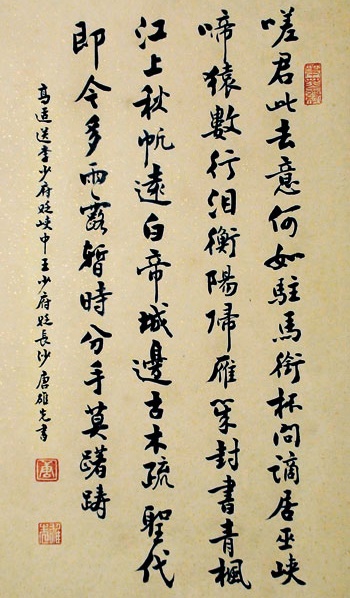 嗟君此去意何如駐馬銜杯問謫居巫峽
啼猿數行泪衡陽歸雁幾封書青楓
江上秋帆遠白帝城邊古木疏聖代
即今多雨露暫時分手莫躇躊
高適送李少府貶峽中王少府貶長沙唐雄先書
唐